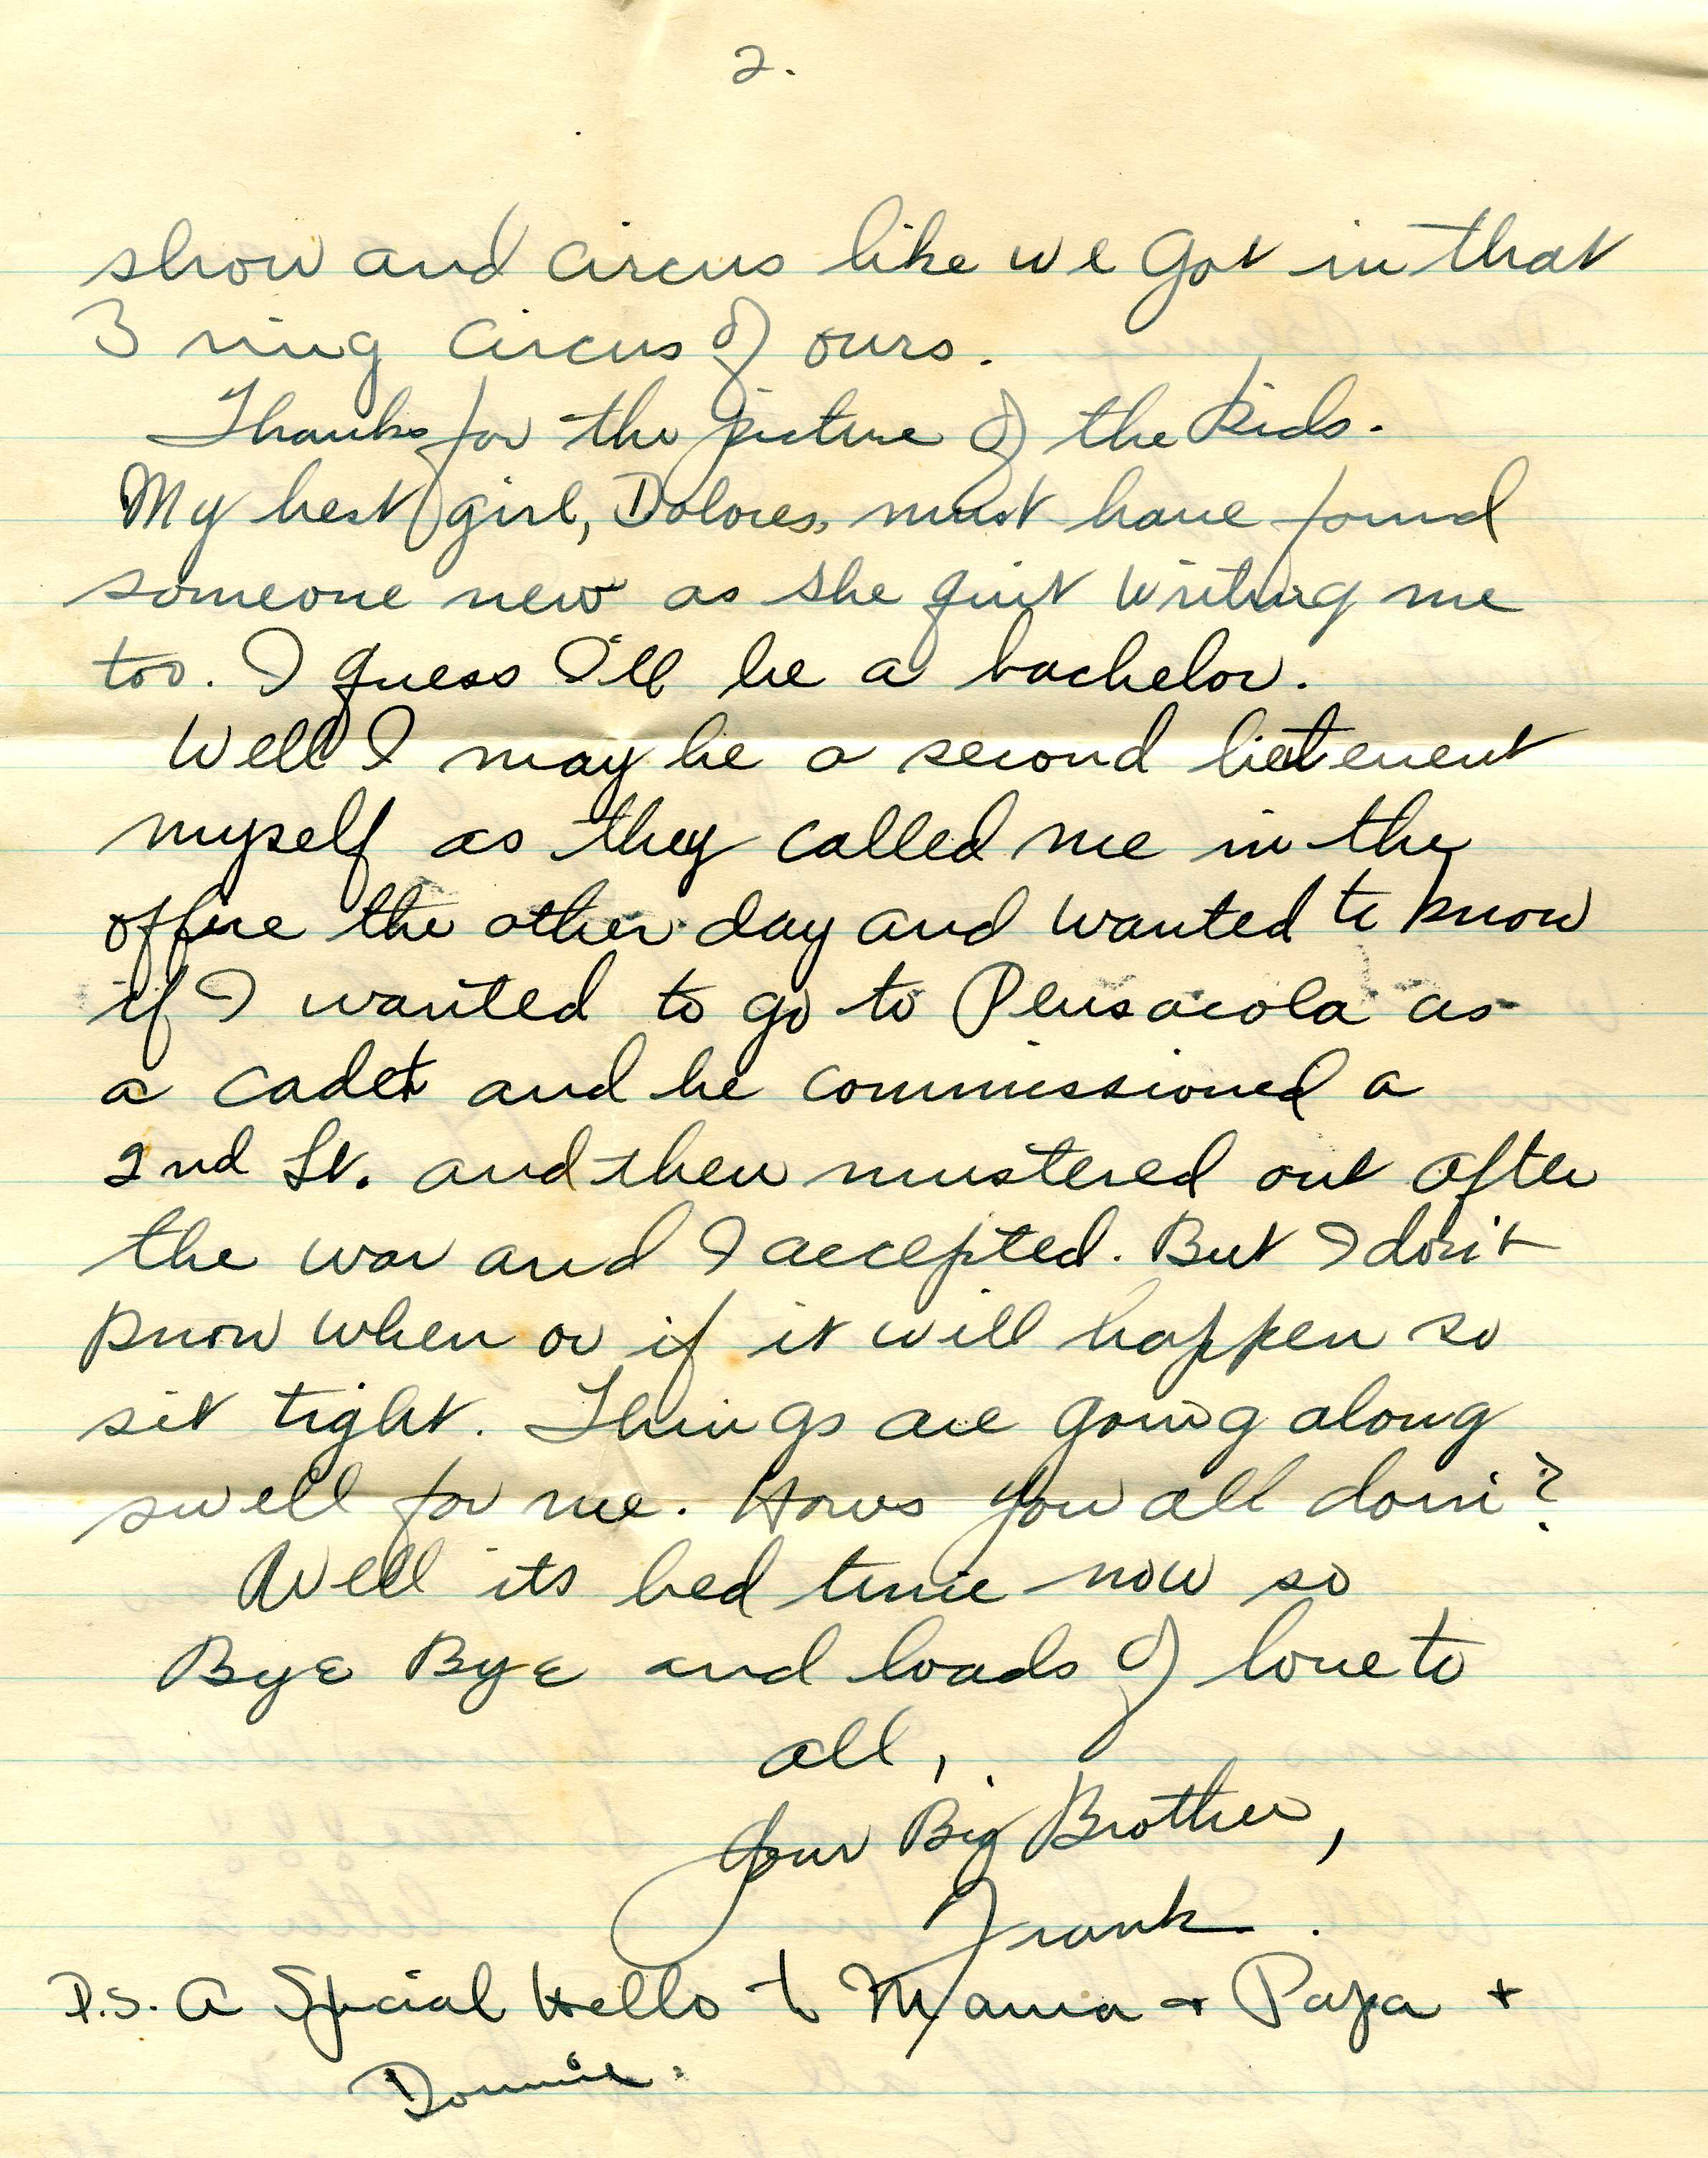 2.
show and circus like we got in that
3 ring circus of ours.
Thanks for the picture of the kids.
My best girl, Dolores, must have found
someone new as she quit writing me
too. I guess I'll be a bachelor.
Well I may be a second lietenent
myself as they called me in the
office the other day and wanted to know
if I wanted to go to Pensacola as
a cadet and be commissioned a
2nd Lt. and then mustered out after
the war and I accepted. But I don't
know when or if it will happen so
sit tight. Things are going along
swell for me. Hows you all doin?
Well its bed time now so
Bye Bye and loads of love to
all,
Your Big Brother,
Frank.
P.S. A Special Hello to Mama + Papa +
Donnie.